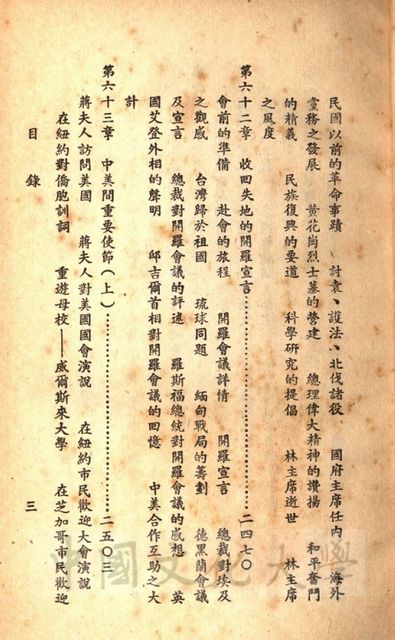 民國以前的革命事蹟 討袁、護法、北伐諸役 國府主席任內 海外
黨務之發展 黃花崗烈士墓的營建 總理偉大精神的讚揚 和平奮鬥
的精義 民族復興的要道 科學研究的提倡 林主席逝世 林主席
之風度
第六十二章 收回失地的開羅宣言……二四七〇
會前的準備 赴會的旅程 開羅會議詳情 開羅宣言 總裁對埃及
之觀感 台灣歸於祖國 琉球同題 緬甸戰局的籌劃 德黑蘭會議
及宣言 總裁對開羅會議的評述 羅斯福總統對開羅會議的感想 英
國艾登外相的聲明 邱吉爾首相對開羅會議的回憶 中美合作互助之大
計
第六十三章 中美間重要使節(上)……二五〇三
蔣夫人訪問美國 蔣夫人對美國國會演說 在紐約市民歡迎大會演說
在紐約對僑胞訓詞 重遊母校——威爾斯來大學 在芝加哥市民歡迎
目錄 三
中國文化大學